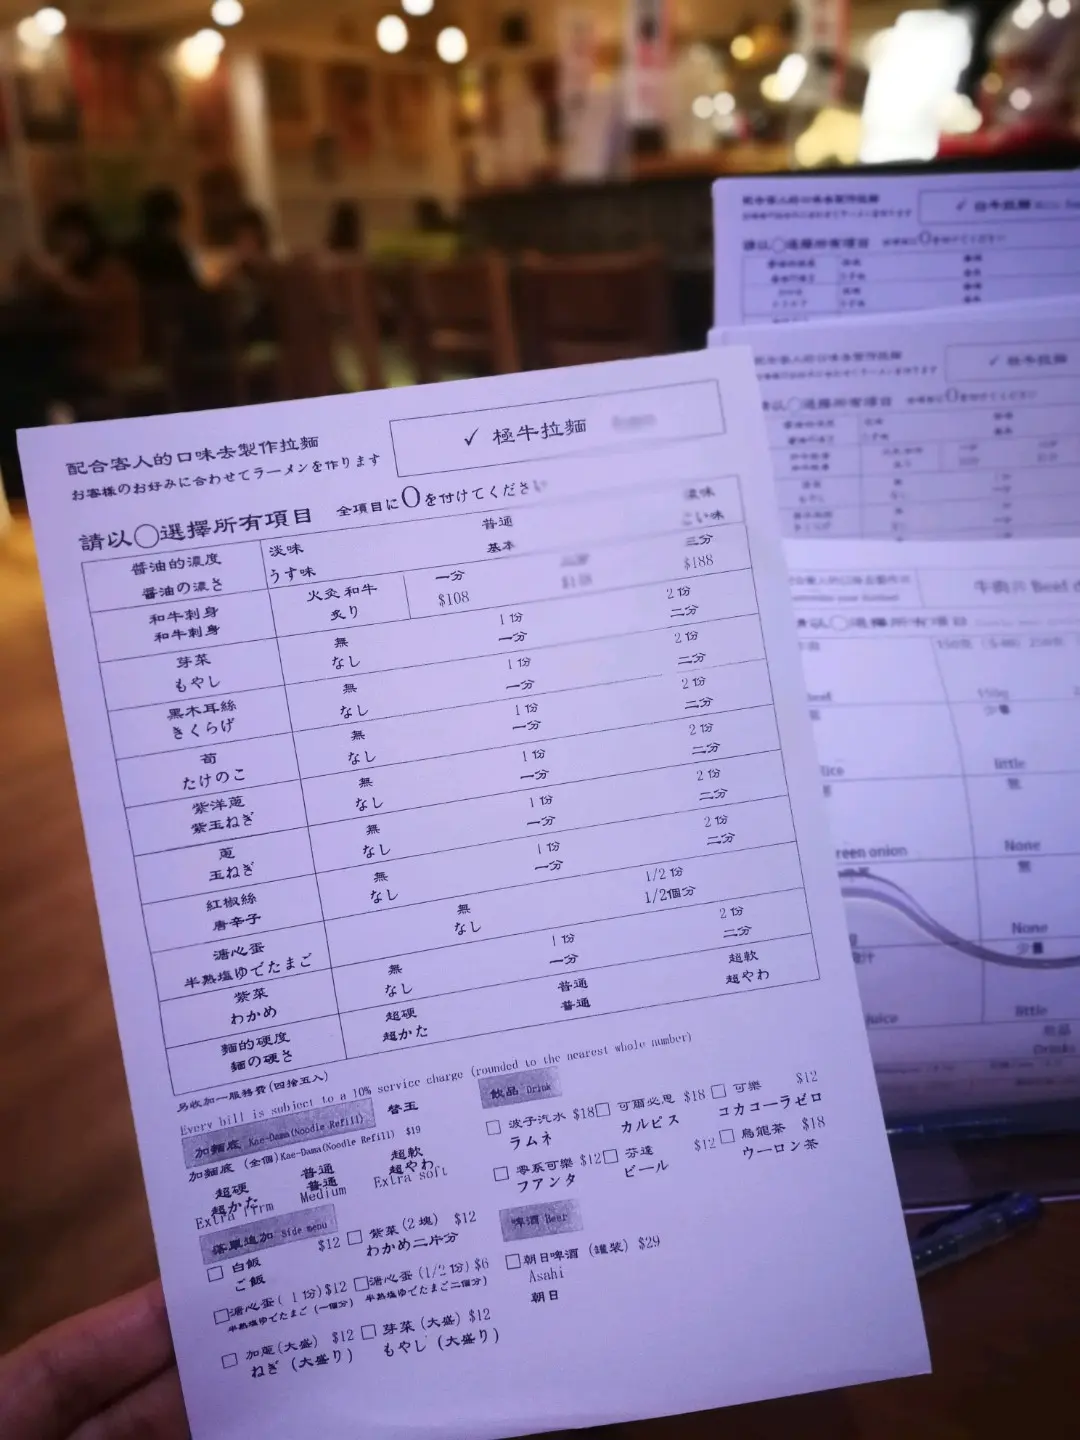 配合客人的口味去製作拉麵
お客様のお好みに合わせてラーメンを作ります
✓ 極牛拉麵
請以◯選擇所有項目 全項目に〇を付けてください
醬油的濃度 淡味 普通 濃味
醬油の濃さ うす味 基本 こい味
和牛刺身 火灸 和牛 一分 三分
和牛刺身 炙り $108 $188
芽菜 無 1份 2份
もやし なし 一分 二分
黑木耳絲 無 1份 2份
きくらげ なし 一分 二分
荀 無 1份 2份
たけのこ なし 一分 二分
紫洋蔥 無 1份 2份
紫玉ねぎ なし 一分 二分
蔥 無 1份 2份
玉ねぎ なし 一分 二分
紅椒絲 無 1份 2份
唐辛子 なし 一分 二分
溏心蛋 無 1/2份
半熟塩ゆでたまご なし 1/2個分
紫菜 無 1份 2份
わかめ なし 一分 二分
麵的硬度 超硬 普通 超軟
麵の硬さ 超かた 普通 超やわ
另收加一服務費(四捨五入)
Every bill is subject to a 10% service charge (rounded to the nearest whole number)
加麵底 Kae-Dama(Noodle Refill) 替玉
加麵底 (全個)Kae-Dama(Noodle Refill) $19
超硬 普通 超軟
超かた 普通 超やわ
Extra firm Medium Extra soft
落單追加 Side menu
□ 白飯 $12 □ 紫菜(2塊) $12
ご飯 わかめ二片分
□溏心蛋( 1份)$12 □溏心蛋(1/2份)$6
半熟塩ゆでたまご (一個分) 半熟塩ゆでたまご二個分)
□ 加蔥(大盛) $12 □ 芽菜(大盛) $12
ねぎ (大盛り) もやし (大盛り)
飲品 Drink
□ 波子汽水 $18 □ 可爾必思 $18 □ 可樂 $12
ラムネ カルピス コカコーラゼロ
□ 零系可樂 $12 □ 芬達 $12 □ 烏龍茶 $18
フアンタ ビール ウーロン茶
啤酒 Beer
□朝日啤酒 (罐裝) $29
Asahi
朝日
請以◯選擇所有項目
請以◯選擇所有項目
little
None
None
little